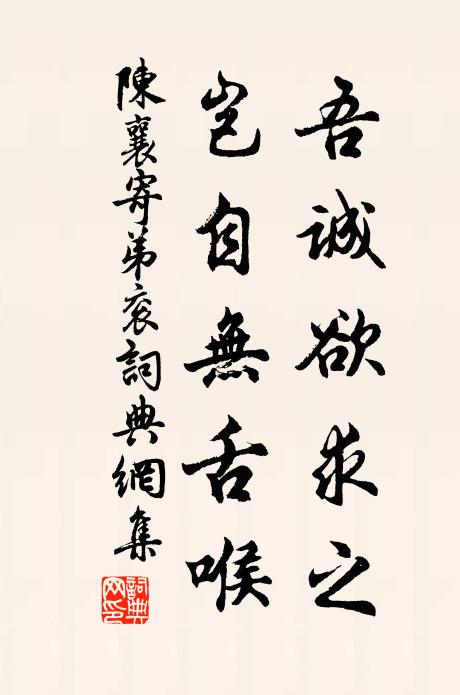 吾誠欲求之
豈自無舌喉
陳襄寄弟衮詞典網集
詞典网印